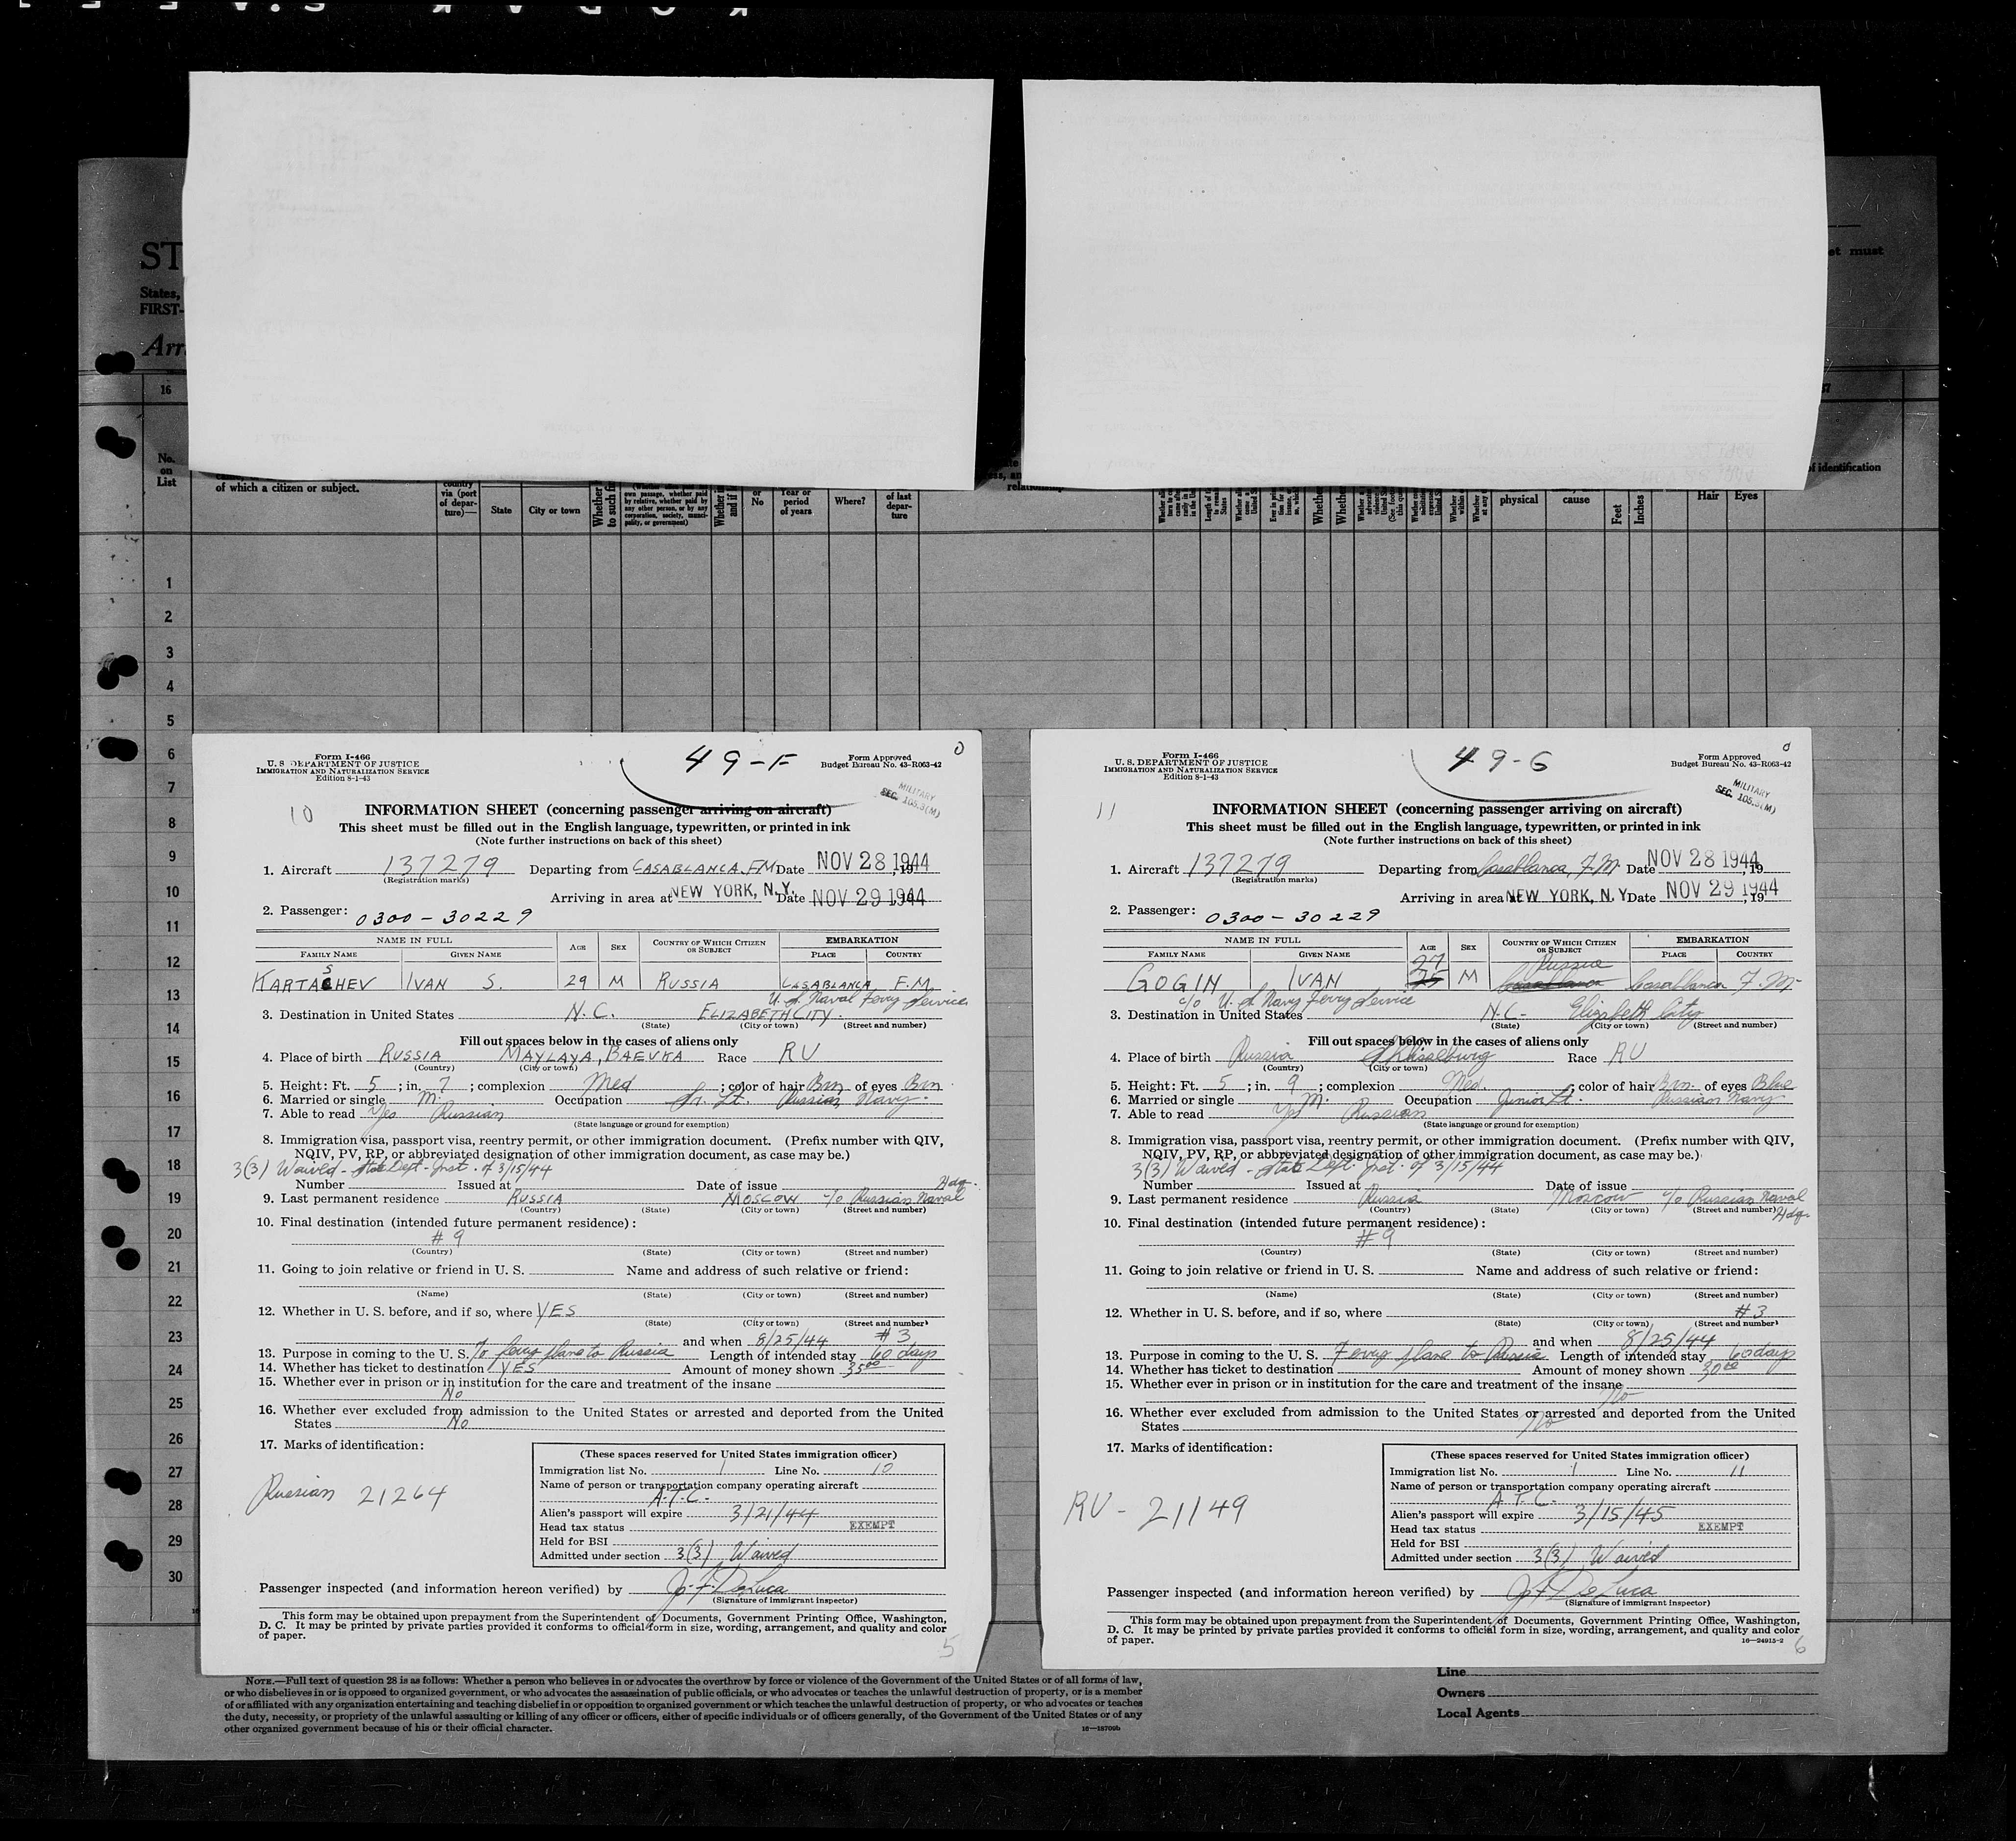 K O D A K S A F E
ST
States,
FIRST-
Arr
et must
16
No.
on
List
of which a citizen or subject.
country
via (port
of depar-
ture)—
State
City or town
Whether
to such f
(Whether
own passage, whether paid
by relative, whether paid by
any other person, or by any
corporation, society, munici-
pality, or government)
or
No
Year or
period
of years
Where?
of last
depar-
ture
physical
cause
Feet
Inches
Hair
Eyes
of identification
1
2
3
4
5
6
7
8
9
10
11
12
13
14
15
16
17
18
19
20
21
22
23
24
25
26
27
28
29
30
Form I-466
U. S. DEPARTMENT OF JUSTICE
IMMIGRATION AND NATURALIZATION SERVICE
Edition 8-1-43
49-F
Form Approved
Budget Bureau No. 43-R063-42
MILITARY
SEC. 105.3(M)
10
INFORMATION SHEET (concerning passenger arriving on aircraft)
This sheet must be filled out in the English language, typewritten, or printed in ink
(Note further instructions on back of this sheet)
1. Aircraft 137279 Departing from CASABLANCA. F.M Date NOV 28 1944, 19
(Registration marks)
Arriving in area at NEW YORK, N.Y. Date NOV 29 1944, 19
2. Passenger: 0300-30229
NAME IN FULL AGE SEX COUNTRY OF WHICH CITIZEN OR SUBJECT EMBARKATION
FAMILY NAME GIVEN NAME PLACE COUNTRY
KARTASHEV IVAN S. 29 M RUSSIA CASABLANCA F.M.
U.S. Naval Ferry Service
3. Destination in United States N.C. ELIZABETH CITY.
(State) (City or town) (Street and number)
Fill out spaces below in the cases of aliens only
4. Place of birth RUSSIA MAYLAYA, BAEVKA Race RU
(Country) (City or town)
5. Height: Ft. 5; in. 7; complexion Med; color of hair Brn of eyes Brn.
6. Married or single M. Occupation Sr. Lt. Russian Navy.
7. Able to read Yes Russian
(State language or ground for exemption)
8. Immigration visa, passport visa, reentry permit, or other immigration document. (Prefix number with QIV,
NQIV, PV, RP, or abbreviated designation of other immigration document, as case may be.)
3(3) Waived - State Dept. Inst. of 3/15/44
Number Issued at Date of issue
9. Last permanent residence RUSSIA MOSCOW c/o Russian Naval Hdq.
(Country) (State) (City or town) (Street and number)
10. Final destination (intended future permanent residence):
# 9
(Country) (State) (City or town) (Street and number)
11. Going to join relative or friend in U. S. Name and address of such relative or friend:
(Name) (State) (City or town) (Street and number)
12. Whether in U. S. before, and if so, where YES
(State) (City or town) (Street and number)
and when 8/25/44 # 3
13. Purpose in coming to the U. S. To ferry plane to Russia Length of intended stay 60 days
14. Whether has ticket to destination YES Amount of money shown 35.00
15. Whether ever in prison or in institution for the care and treatment of the insane
No
16. Whether ever excluded from admission to the United States or arrested and deported from the United
States No
17. Marks of identification:
Russian 21264
(These spaces reserved for United States immigration officer)
Immigration list No. 1 Line No. 10
Name of person or transportation company operating aircraft
A.T.C.
Alien's passport will expire 3/21/44
Head tax status EXEMPT
Held for BSI
Admitted under section 3(3) Waived
Passenger inspected (and information hereon verified) by J. F. DeLuca
(Signature of immigrant inspector)
This form may be obtained upon prepayment from the Superintendent of Documents, Government Printing Office, Washington,
D. C. It may be printed by private parties provided it conforms to official form in size, wording, arrangement, and quality and color
of paper.
5
Form I-466
U. S. DEPARTMENT OF JUSTICE
IMMIGRATION AND NATURALIZATION SERVICE
Edition 8-1-43
49-G
Form Approved
Budget Bureau No. 43-R063-42
MILITARY
SEC. 105.3(M)
11
INFORMATION SHEET (concerning passenger arriving on aircraft)
This sheet must be filled out in the English language, typewritten, or printed in ink
(Note further instructions on back of this sheet)
1. Aircraft 137279 Departing from Casablanca, F.M. Date NOV 28 1944, 19
(Registration marks)
Arriving in area NEW YORK, N.Y. Date NOV 29 1944, 19
2. Passenger: 0300-30229
NAME IN FULL AGE SEX COUNTRY OF WHICH CITIZEN OR SUBJECT EMBARKATION
FAMILY NAME GIVEN NAME PLACE COUNTRY
GOGIN IVAN 27 M Russia Casablanca F.M.
c/o U.S. Navy Ferry Service
3. Destination in United States N.C. Elizabeth City
(State) (City or town) (Street and number)
Fill out spaces below in the cases of aliens only
4. Place of birth Russia Race RU
(Country) (City or town)
5. Height: Ft. 5; in. 9; complexion Med.; color of hair Brn. of eyes Blue
6. Married or single M. Occupation Junior Lt. Russian Navy
7. Able to read Yes Russian
(State language or ground for exemption)
8. Immigration visa, passport visa, reentry permit, or other immigration document. (Prefix number with QIV,
NQIV, PV, RP, or abbreviated designation of other immigration document, as case may be.)
3(3) Waived - State Dept. Inst. of 3/15/44
Number Issued at Date of issue
9. Last permanent residence Russia Moscow c/o Russian Naval Hdq.
(Country) (State) (City or town) (Street and number)
10. Final destination (intended future permanent residence):
# 9
(Country) (State) (City or town) (Street and number)
11. Going to join relative or friend in U. S. Name and address of such relative or friend:
(Name) (State) (City or town) (Street and number)
12. Whether in U. S. before, and if so, where # 3
(State) (City or town) (Street and number)
and when 8/25/44
13. Purpose in coming to the U. S. Ferry plane to Russia Length of intended stay 60 days
14. Whether has ticket to destination Amount of money shown 30.00
15. Whether ever in prison or in institution for the care and treatment of the insane
No
16. Whether ever excluded from admission to the United States or arrested and deported from the United
States No
17. Marks of identification:
RU - 21149
(These spaces reserved for United States immigration officer)
Immigration list No. 1 Line No. 11
Name of person or transportation company operating aircraft
A.T.C.
Alien's passport will expire 3/15/45
Head tax status EXEMPT
Held for BSI
Admitted under section 3(3) Waived
Passenger inspected (and information hereon verified) by J F DeLuca
(Signature of immigrant inspector)
This form may be obtained upon prepayment from the Superintendent of Documents, Government Printing Office, Washington,
D. C. It may be printed by private parties provided it conforms to official form in size, wording, arrangement, and quality and color
of paper.
16—24915-2
6
NOTE.—Full text of question 28 is as follows: Whether a person who believes in or advocates the overthrow by force or violence of the Government of the United States or of all forms of law,
or who disbelieves in or is opposed to organized government, or who advocates the assassination of public officials, or who advocates or teaches the unlawful destruction of property, or is a member
of or affiliated with any organization entertaining and teaching disbelief in or opposition to organized government or which teaches the unlawful destruction of property, or who advocates or teaches
the duty, necessity, or propriety of the unlawful assaulting or killing of any officer or officers, either of specific individuals or of officers generally, of the Government of the United States or of any
other organized government because of his or their official character.
16—18709b
Line
Owners
Local Agents